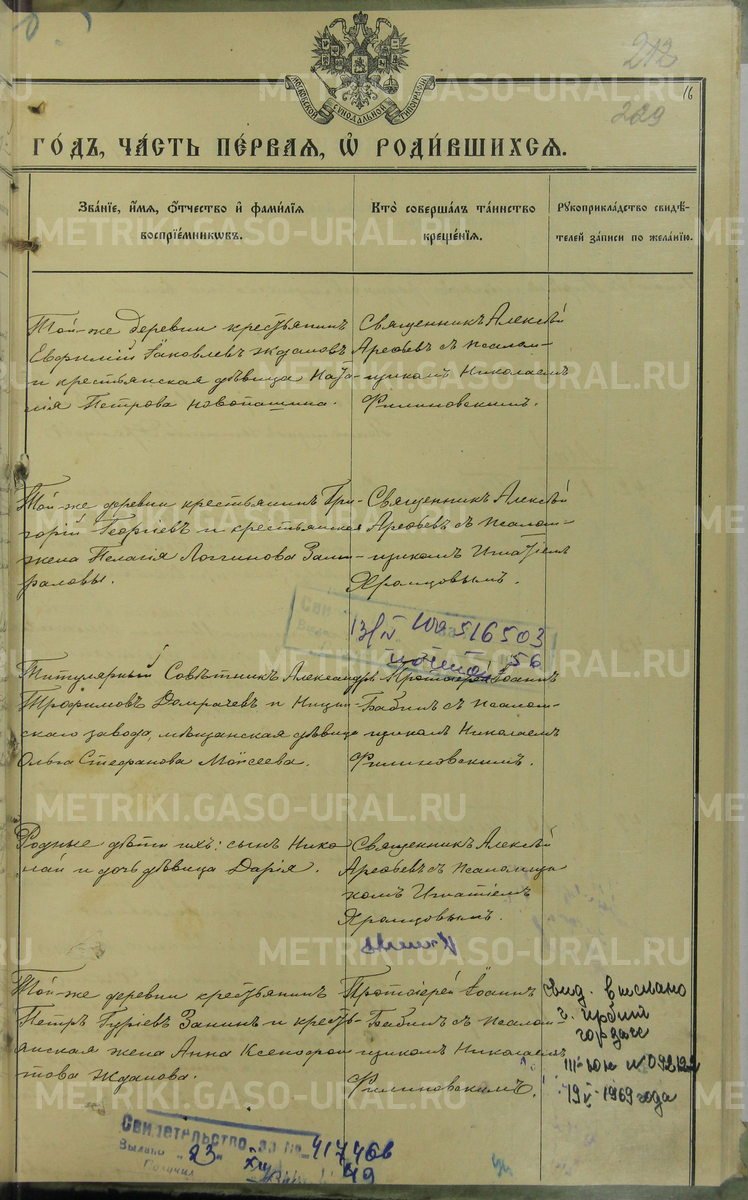 212
16
229
МОСКОВСКОЙ СѴНОДАЛЬНОЙ ТИПОГРАФІИ
ГО́ДЪ, ЧА́СТЬ ПЕ́РВАЯ, Ѡ҆ РОДИ́ВШИХСѦ.
Зва́нїе, и҆́мѧ, ѻ҆́тчество и҆ фами́лїѧ
воспрїе́мникѡвъ.
Кто̀ соверша́лъ та́инство
креще́нїѧ.
Рꙋкоприкла́дство свидѣ́-
телей за́писи по жела́нїю.
Той-же деревни крестьянинъ
Евфимій Іаковлевъ Ждановъ
и крестьянская дѣвица Ната-
лія Петрова Новопашина.
Священникъ Алексѣй
Арефьевъ съ псалом-
щикомъ Николаемъ
Филиновскимъ.
Той-же деревни крестьянинъ Гри-
горій Георгіевъ и крестьянская
жена Пелагія Логгинова
Священникъ Алексѣй
Арефьевъ съ псалом-
щикомъ Игнатіемъ
Храмцовымъ.
516503
56
Титулярный Совѣтникъ Александръ
Трофимовъ Домрачевъ и Ницин-
скаго завода, мѣщанская дѣвица
Ольга Стефанова Моисеева.
Протоіерей Іоаннъ
Бабинъ съ псалом-
щикомъ Николаемъ
Филиновскимъ.
Родные дѣти ихъ: сынъ Нико-
лай и дочь дѣвица Дарія.
Священникъ Алексѣй
Арефьевъ съ псаломщи-
комъ Игнатіемъ
Храмцовымъ.
Той-же деревни крестьянинъ
Петръ Гуріевъ Занинъ и кресть-
янская жена Анна Ксенофон-
това Жданова.
Протоіерей Іоаннъ
Бабинъ съ псалом-
щикомъ Николаемъ
Филиновскимъ.
свид. выслано
г. Ирбит
горзагс
III-ЮН № 092122
19 V-1969 года
Свидетельство за №
Выдано "23"
Получил
49
METRIKI.GASO-URAL.RU